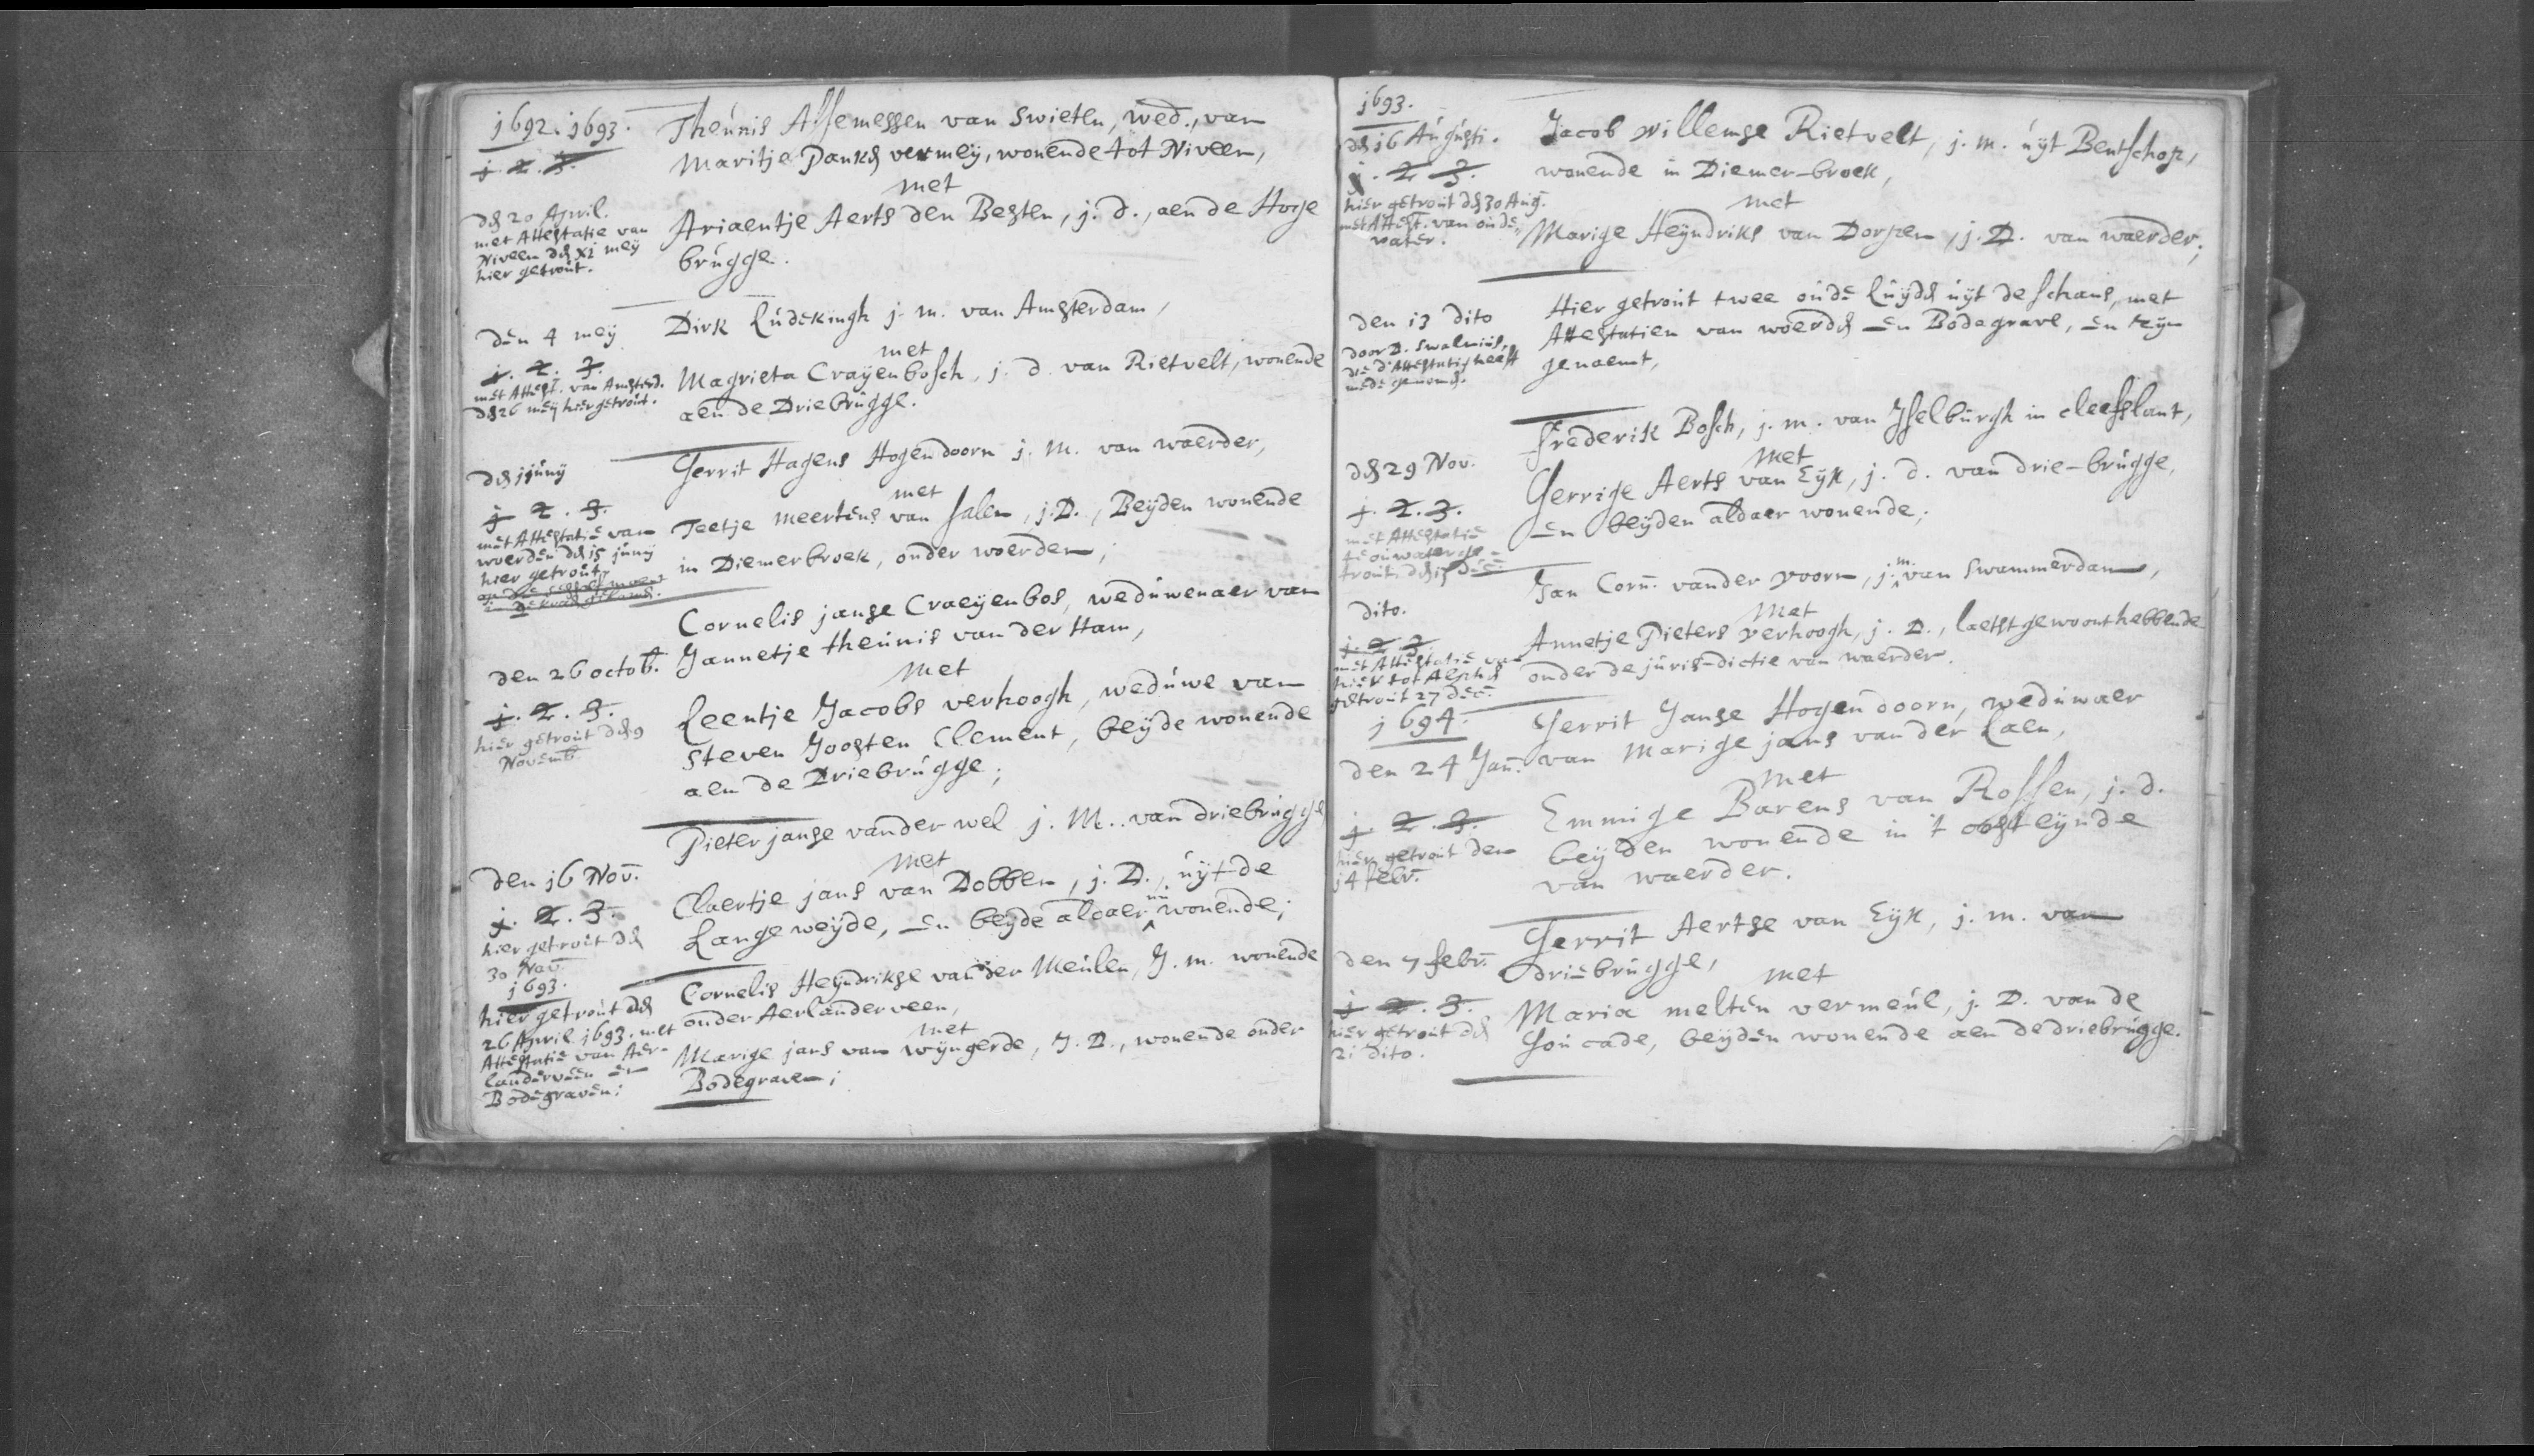 1692. 1693.
j. 2. 3.
dg 20 April.
met Attestatie van
Niveen dg xj meij
hier getrout.
Theunis Assemessen van Swieten, wed., van
Maritje Pauks vermeij, wonende tot Niveen,
met
Ariaentje Aerts den Besten, j. d., aen de Hoge
brugge.
den 4 meij
j. 2. 3.
met Attest. van Amsterd.
dg 26 meij hier getrout.
Dirk Ludekingh j. m. van Amsterdam,
met
Magrieta Craijenbosch, j. d. van Rietvelt, wonende
aen de Driebrugge.
dg j junij
j 2. 3.
met Attestatie van
woerden dg 15 junij
hier getrout,
Gerrit Hagens Hogendoorn j. m. van waerder,
met
Teetje meertens van Salen, j. D., Beijden wonende
in Diemerbroek, onder woerden;
den 26 octob.
j. 2. 3.
hier getrout dg 9
Novemb.
Cornelis janse Craeijenbos, weduwenaer van
Jannetje theunis van der Ham,
met
Leentje Jacobs verhoogh, weduwe van
Steven Joosten Clement, beijde wonende
aen de Driebrugge;
den 16 Nov.
j. 2. 3.
hier getrout dg
30 Nov.
Pieter janse vander wel j. M. van driebrugge
met
Claertje jans van Dobben, j. D., uijt de
Lange weijde, en beijde aldaer nu wonende;
1693.
hier getrout dg
26 April 1693. met
Attestatie van Aer-
landerveen en
Bodegraven;
Cornelis Heijndrikse van der Meulen, J. m. wonende
onder Aerlanderveen,
met
Marige jans van wijngerde, J. D., wonende onder
Bodegraven;
1693.
dg 16 Augusti.
j. 2 3.
hier getrout dg 30 Aug.
met Attest. van oude-
water.
Jacob willemse Rietvelt, j. m. uijt Bentschop,
wonende in Diemer-broek,
met
Marige Heijndriks van Dorpen, j. D. van waerder;
den 13 dito
door D. Swalmius,
die d'Attestatis heeft
mede genomen.
Hier getrout twee oude luijdg uijt de schans, met
Attestatien van woerdg en Bodegrave, en zijn
genaemt,
dg 29 Nov.
j. 2. 3.
met Attestatie
te ouwater ge-
trout dg 15 Dec.
Frederik Bosch, j. m. van Jsselburgh in cleefslant,
met
Gerrige Aerts van Eijk, j. d. van drie-brugge,
en beijden aldaer wonende;
dito.
j. 2 3.
met Attestatie van
hier tot Alphen
getrout 27 Dec.
Jan Corn. vander voorn, j. m. van Swammerdam,
met
Annetje Pieters verhoogh, j. D., laetst gewoont hebbende
onder de juris-dictie van waerder.
1694.
den 24 Jan.
j 2. 3.
hier getrout den
14 febr.
Gerrit Janse Hogendoorn, weduwaer
van Marige jans van der Laen,
met
Emmige Barens van Rossen, j. d.
beijden wonende in 't oosteijnde
van waerder.
den 7 febr.
j 2. 3.
hier getrout dg
21 dito.
Gerrit Aertse van Eijk, j. m. van
driebrugge,
met
Maria melten vermeul, j. D. van de
Hou cade, beijden wonende aen de driebrugge.